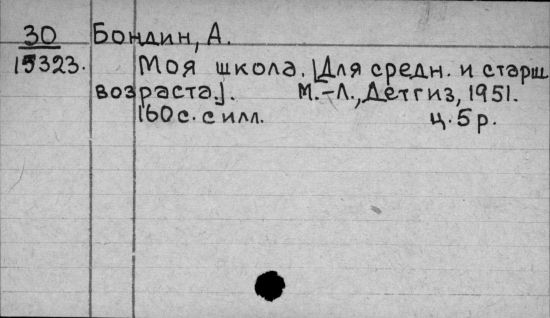 30 Бондин, А.
15323. Моя школа. [Для средн. и старш.
возраста]. М.-Л., Детгиз, 1951.
160 с. с илл. ц. 5 р.